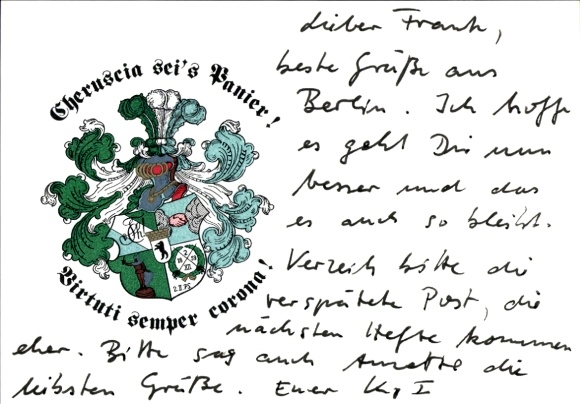 Cheruscia sei's Panier!
Virtuti semper corona!
2.8.75
Lieber Frank,
beste Grüße aus
Berlin. Ich hoffe
es geht Dir nun
besser und das
es auch so bleibt.
Verzeih bitte die
verspätete Post, die
nächsten Hefte kommen
eher. Bitte sag auch Annette die
liebsten Grüße. Euer